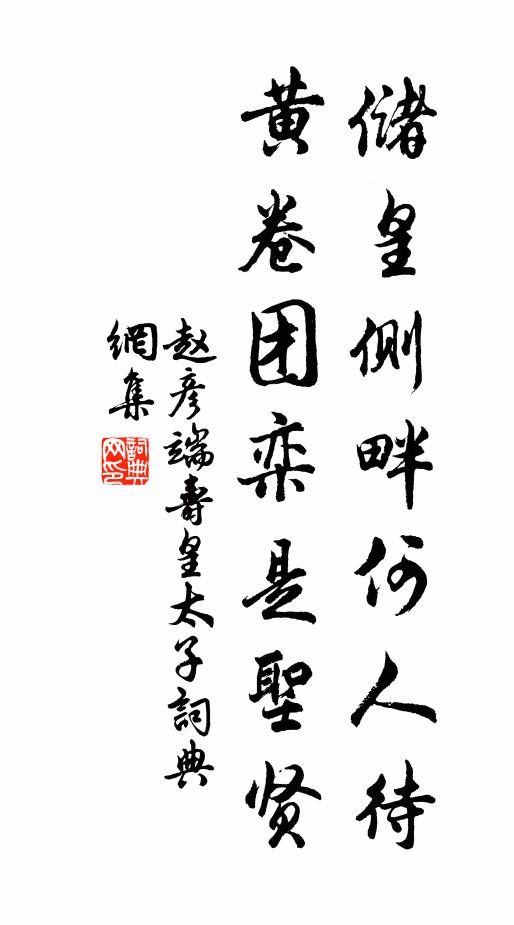 儲皇側畔何人待
黄卷团栾是聖贤
赵彦端壽皇太子詞典
網集
詞典
网印